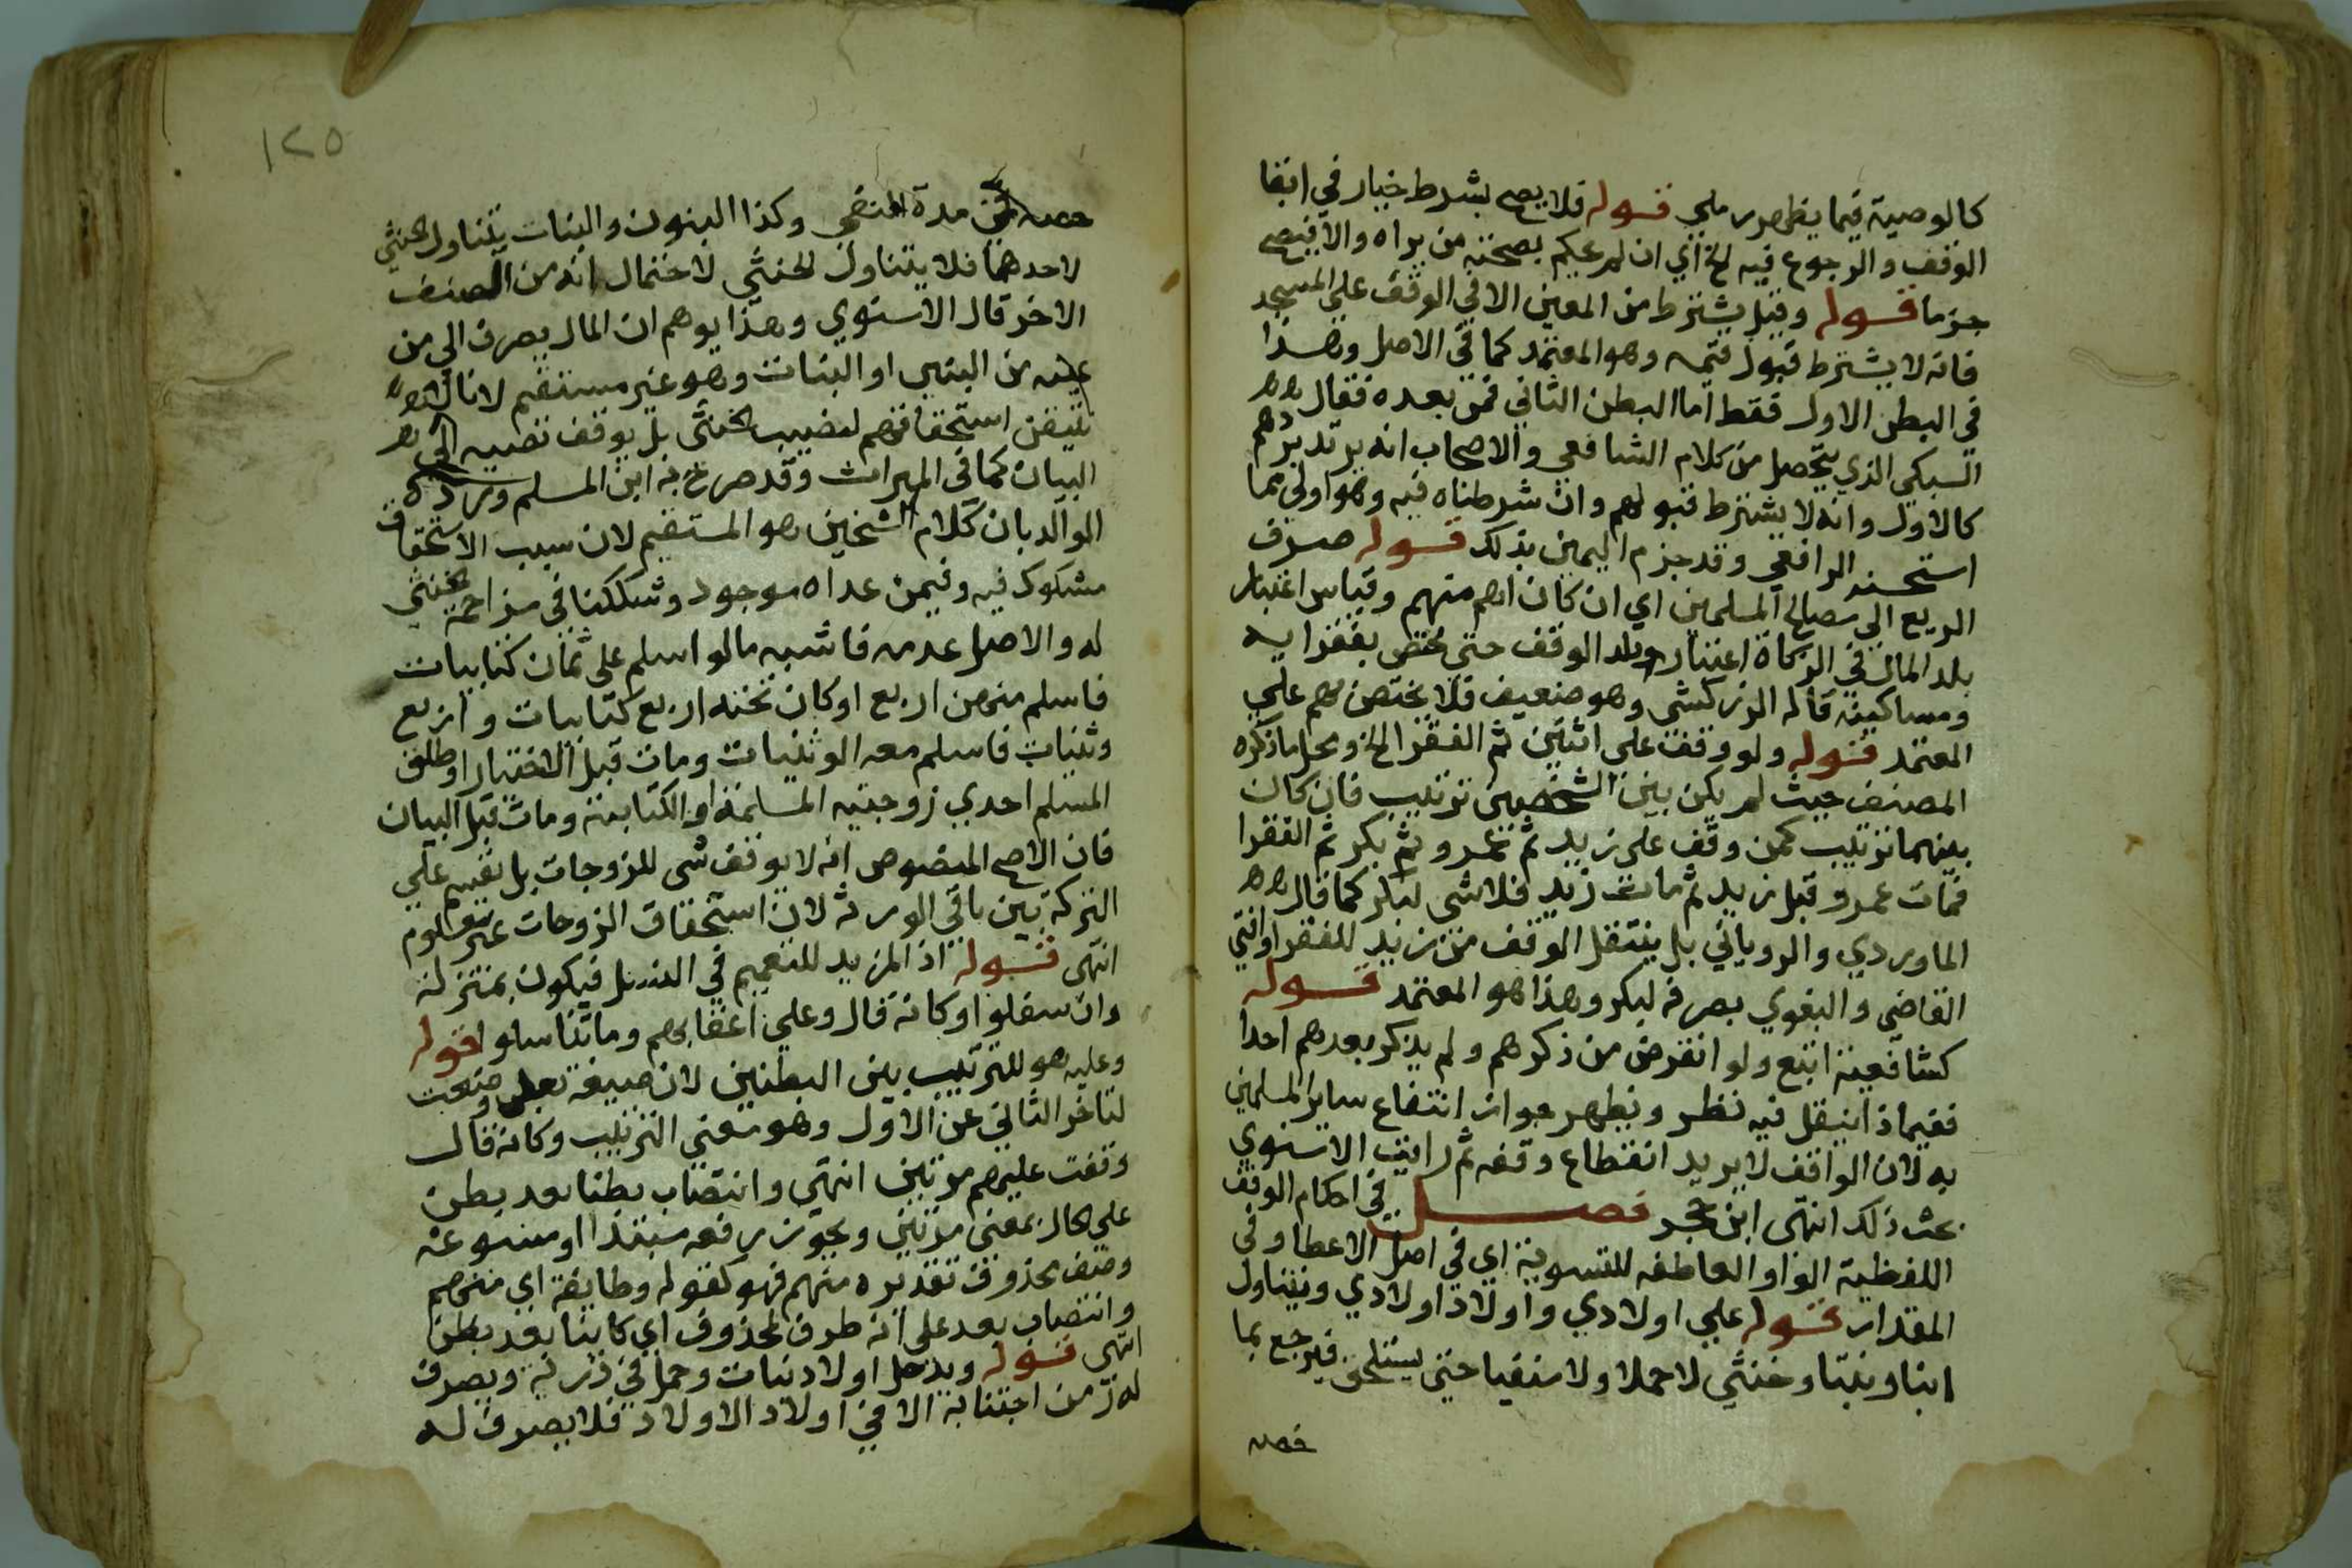 كالوصية فيما يظهر رملي قوله فلا يصح بشرط خيار في ابقا
الوقف والرجوع فيه الخ اي ان لم يحكم بصحته من يراه والا فيصح
جزما قوله وقيل يشترط من المعين الا في الوقف على المسجد
فانه لا يشترط قبول قيمه وهو المعتمد كما في الاصل وهذا
في البطن الاول فقط اما البطن الثاني فمن بعده فقال
السبكي الذي يتحصل من كلام الشافعي والاصحاب انه يرتد بردهم
كالاول وانه لا يشترط قبولهم وان شرطناه فيه وهو اولى مما
استحسنه الرافعي وقد جزم اليمين بذلك قوله صرف
الريع الى مصالح المسلمين اي ان كان اهم منهم وقياس اعتبار
بلد المال في الزكاة اعتبار بلد الوقف حتى يختص بفقرايه
ومساكينه قاله الزركشي وهو ضعيف فلا يختص بهم على
المعتمد قوله ولو وقف على اثنين ثم الفقرا الخ ومحل ما ذكره
المصنف حيث لم يكن بين الشخصين ترتيب فان كان
بينهما ترتيب كمن وقف على زيد ثم عمرو ثم بكر ثم الفقرا
فمات عمرو قبل زيد ثم مات زيد فلا شى لبكر كما قال
الماوردي والروياني بل ينتقل الوقف من زيد للفقرا وافتى
القاضي والبغوي بصرفه لبكر وهذا هو المعتمد قوله
كشافعية اتبع ولو انقرض من ذكرهم ولم يذكر بعدهم احدا
ففيماذا ينتقل فيه نظر ويظهر جواز انتفاع ساير المسلمين
به لان الواقف لا يريد انقطاع وقفه ثم رايت الاسنوي
بحث ذلك انتهى ابن حجر فصل في احكام الوقف
اللفظية الواو العاطفه للتسوية اي في اصل الاعطا وفي
المقدار قوله على اولادي واولاد اولادي ويتناول
ابنا وبنتا وخنثى لا حملا ولا منفيا حتى يستلحق فيرجع بما
خصه
١٢٥
خصه في مدة النفي وكذا البنون والبنات يتناول خنثى
لاحدهما فلا يتناول الخنثى لاحتمال انه من الصنف
الاخر قال الاسنوي وهذا يوهم ان المال يصرف الى من
عينه من البنين او البنات وهو غير مستقيم لانا لا
نتيقن استحقاقهم لنصيب الخنثى بل يوقف نصيبه الى
البيان كما في الميراث وقد صرح به ابن المسلم ورده
الوالد بان كلام الشخين هو المستقيم لان سبب الاستحقاق
مشكوك فيه وفيمن عداه موجود وشككنا في مزاحمة الخنثى
له والاصل عدمه فاشبه ما لو اسلم على ثمان كتابيات
فاسلم منهن اربع او كان تحته اربع كتابيات واربع
وثنيات فاسلم معه الوثنيات ومات قبل الاختيار او طلق
المسلم احدي زوجتيه المسلمة او الكتابية ومات قبل البيان
فان الاصح المنصوص انه لا يوقف شى للزوجات بل تقسم على
التركة بين باقي الورثة لان استحقاق الزوجات غير معلوم
انتهى قوله اذ المزيد للتعميم في النسل فيكون بمنزلة
وان سفلوا وكانه قال وعلى اعقابهم وما تناسلوا قوله
وعليه هو للترتيب بين البطنين لان صيغة بعد وضعت
لتاخر الثاني عن الاول وهو معنى الترتيب وكانه قال
وقفت عليهم مرتبين انتهى وانتصاب بطنا بعد بطن
على الحال بمعنى مرتبين ويجوز رفعه مبتدا او مسوغه
وصف محذوف تقديره منهم فهو كقوله وطايفة اي منهم
وانتصاب بعد على انه ظرف لمحذوف اي كاينا بعد بطن
انتهى قوله ويدخل اولاد بنات وحمل في ذرية ويصرف
له من اجتنابه الا في اولاد الاولاد فلا يصرف له